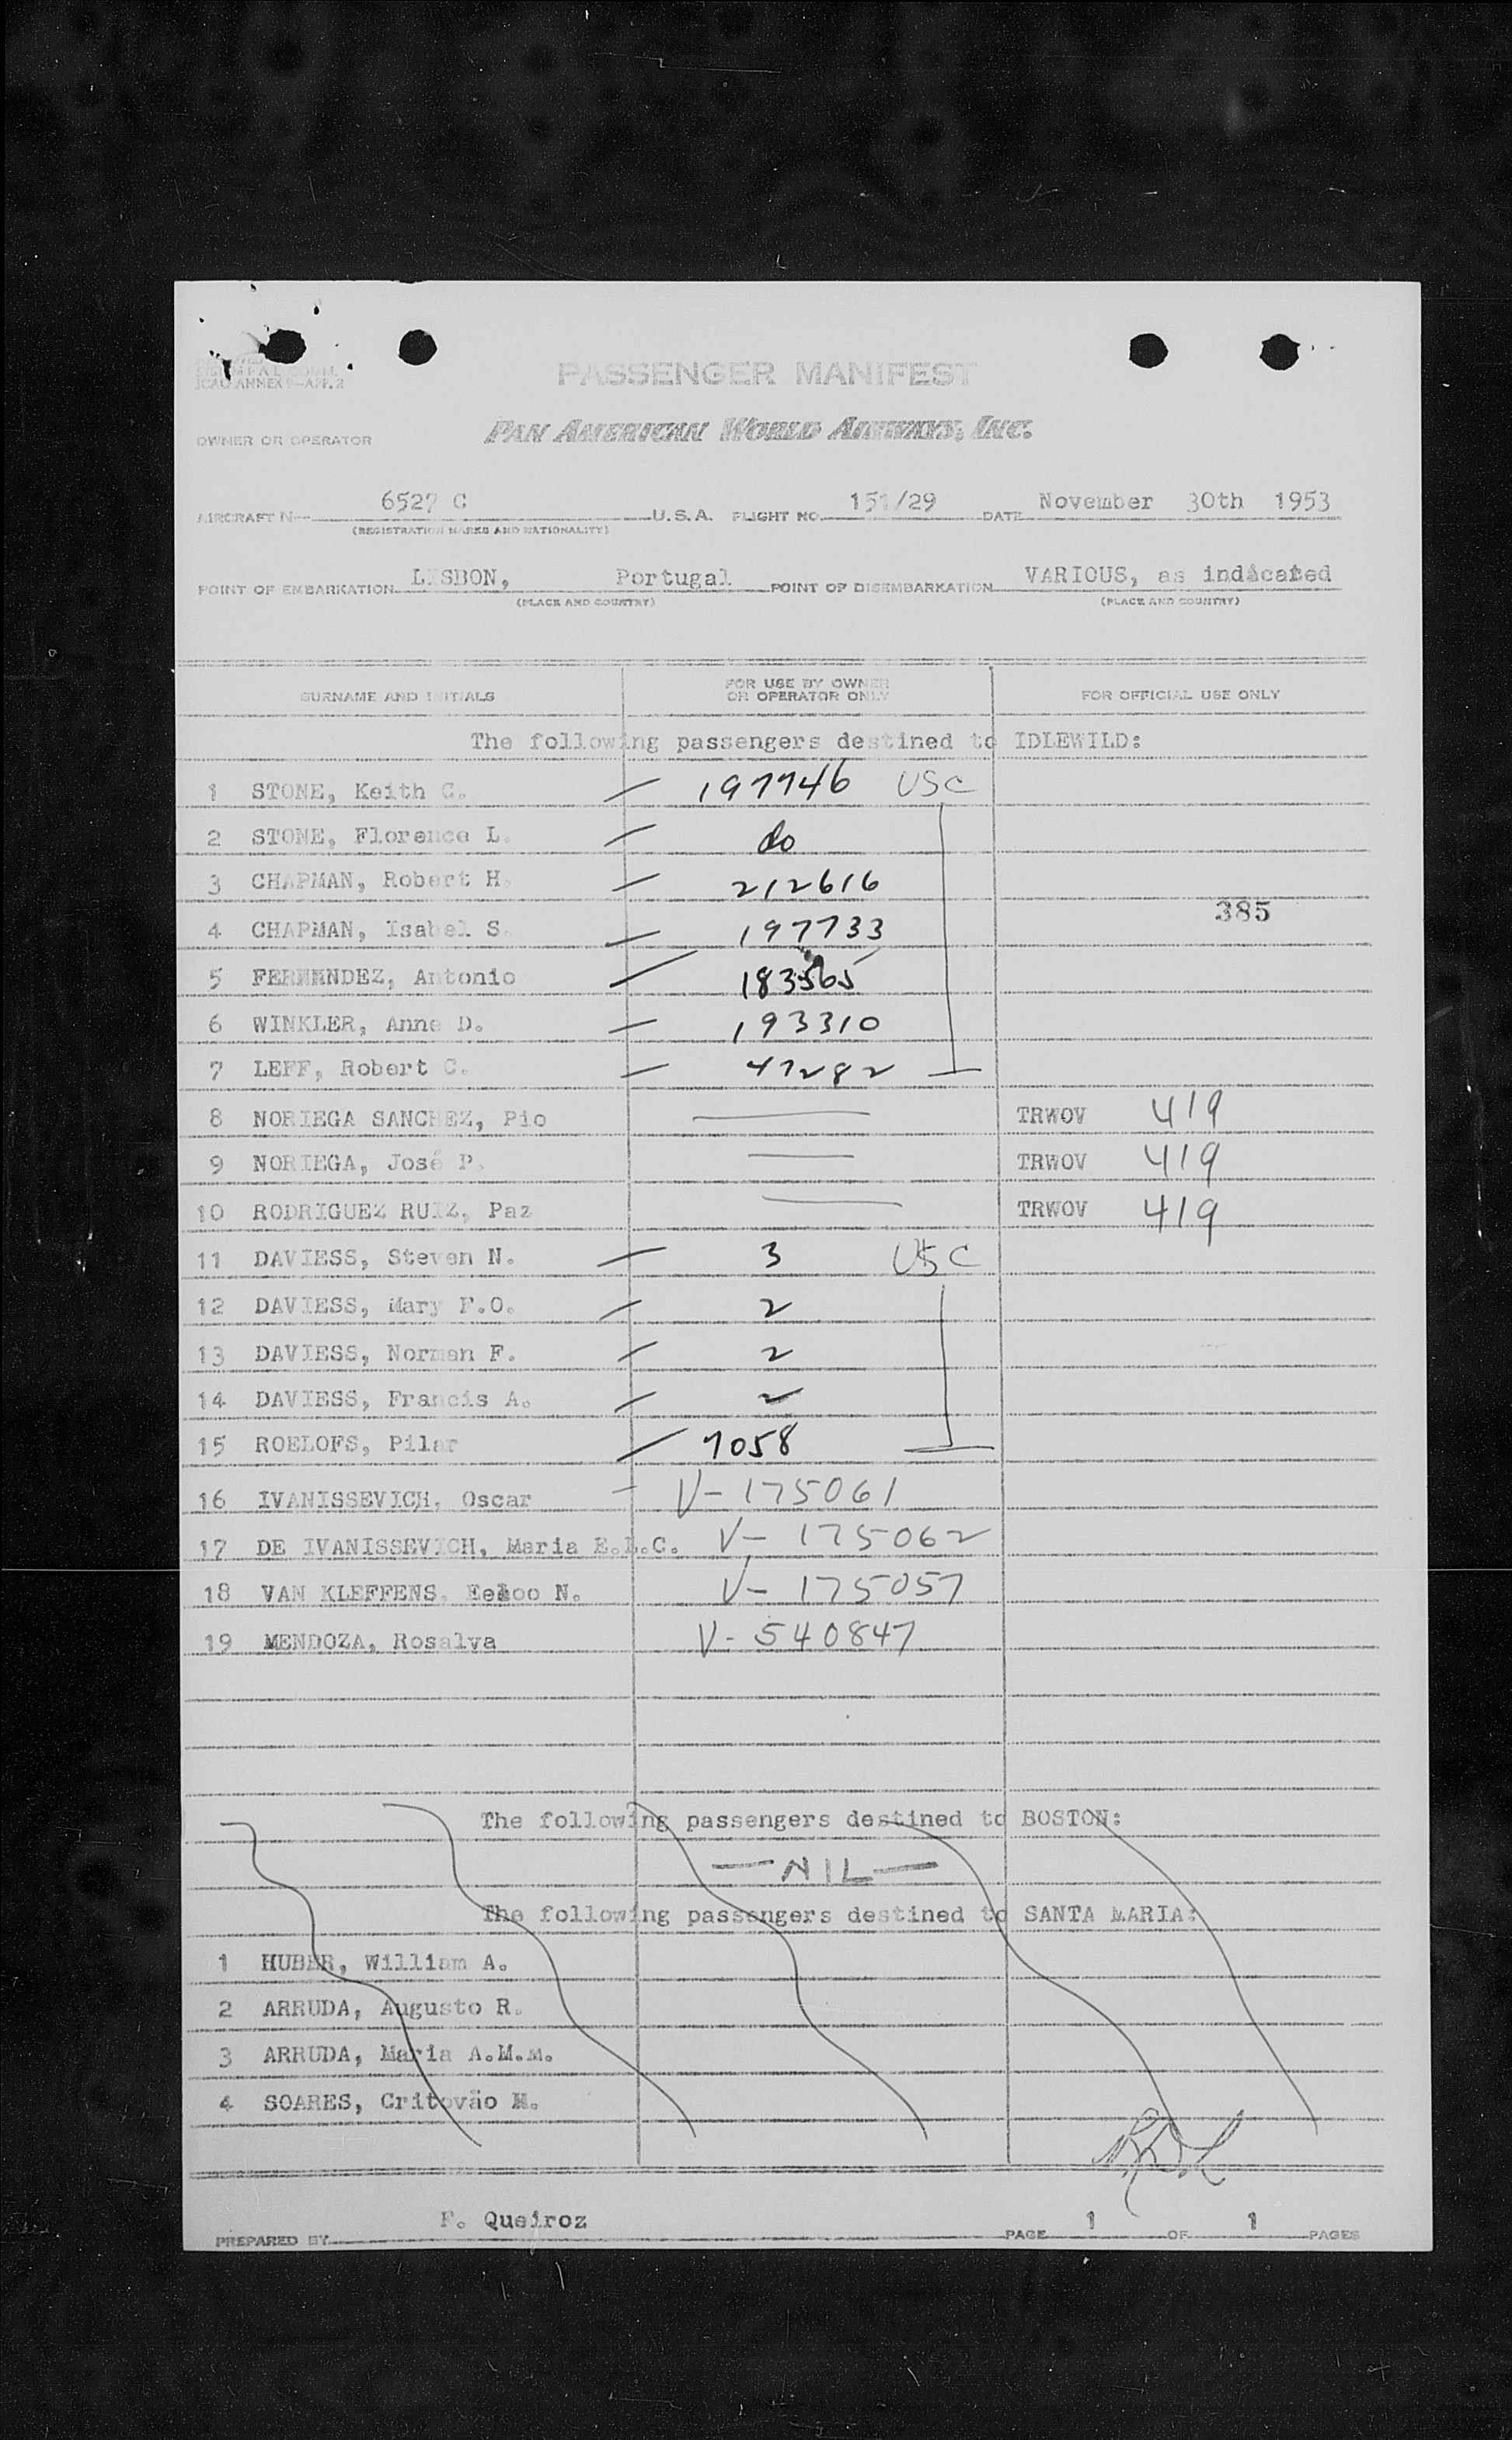 ICAO ANNEX 9—APP. 2
PASSENGER MANIFEST
OWNER OR OPERATOR PAN AMERICAN WORLD AIRWAYS, INC.
AIRCRAFT N— 6527 C U.S.A. FLIGHT NO. 151/29 DATE November 30th 1953
(REGISTRATION MARKS AND NATIONALITY)
POINT OF EMBARKATION LISBON, Portugal POINT OF DISEMBARKATION VARIOUS, as indicated
(PLACE AND COUNTRY) (PLACE AND COUNTRY)
SURNAME AND INITIALS FOR USE BY OWNER OR OPERATOR ONLY FOR OFFICIAL USE ONLY
The following passengers destined to IDLEWILD:
1 STONE, Keith C. — 197746 USC
2 STONE, Florence L. — do
3 CHAPMAN, Robert H. — 212616
385
4 CHAPMAN, Isabel S. — 197733
5 FERNENDEZ, Antonio — 183565
6 WINKLER, Anne D. — 193310
7 LEFF, Robert C. — 47282
8 NORIEGA SANCHEZ, Pio — TRWOV 419
9 NORIEGA, José P. — TRWOV 419
10 RODRIGUEZ RUIZ, Paz — TRWOV 419
11 DAVIESS, Steven N. — 3 USC
12 DAVIESS, Mary F.O. — 2
13 DAVIESS, Norman F. — 2
14 DAVIESS, Francis A. — 2
15 ROELOFS, Pilar — 7058
16 IVANISSEVICH, Oscar — V-175061
17 DE IVANISSEVICH, Maria E.L.C. V-175062
18 VAN KLEFFENS, Eelco N. V-175057
19 MENDOZA, Rosalva V-540847
The following passengers destined to BOSTON:
—NIL—
The following passengers destined to SANTA MARIA:
1 HUBER, William A.
2 ARRUDA, Augusto R.
3 ARRUDA, Maria A.M.M.
4 SOARES, Critovão M.
PREPARED BY F. Queiroz PAGE 1 OF 1 PAGES